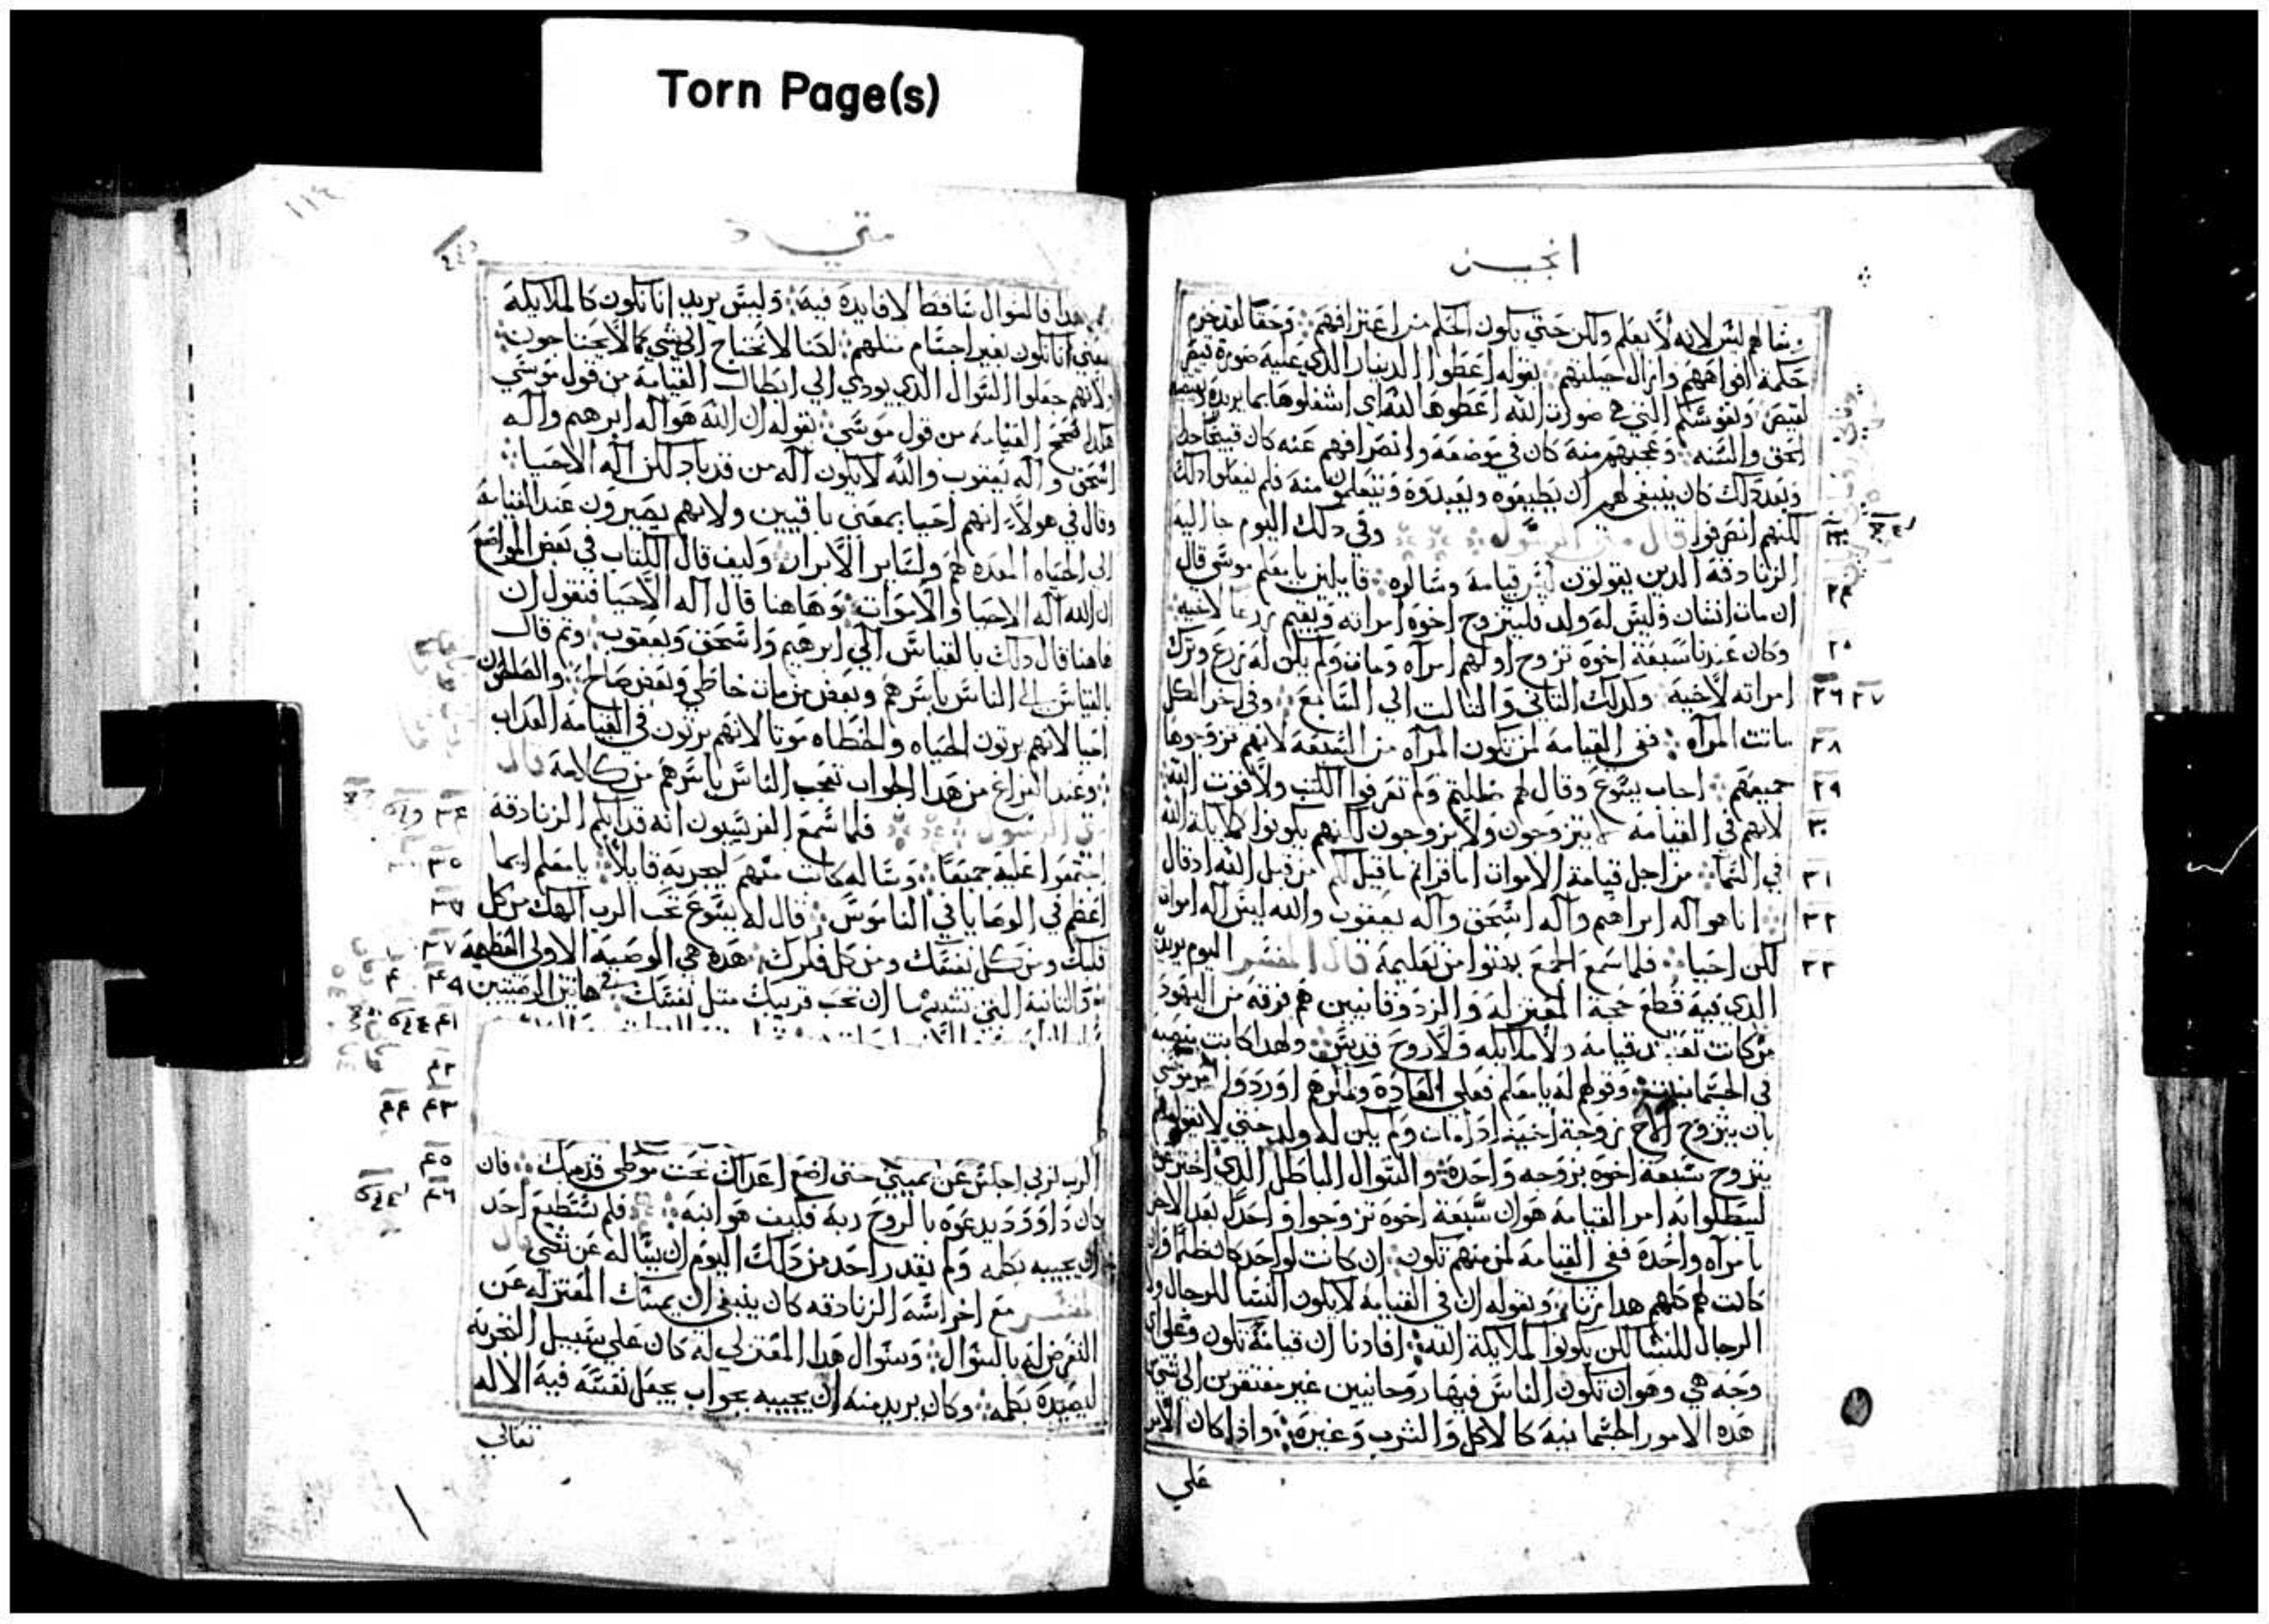 Torn Page(s)
انجيل
وسالهم ليس لانه لا يعلم ولكن حتي يكون الحكم من اعترافهم وحقا لقد خزم
حكمة افواههم وازال حيلتهم بقوله اعطوا الدينار الذي عليه صورة قيصر
لقيصر ونفوسكم التي هي صورت الله اعطوها لله اي اشغلوها بما يريده
الحق والسنه وعجبهم منه كان في موضعه وانصرافهم عنه كان قبيحا جدا
وبعد ذلك كان ينبغي لهم ان يطيعوه ويعبدوه ويتعلموا منه فلم يفعلوا ذلك
لكنهم انصرفوا قال متي الرسول وفي ذلك اليوم جا اليه
الزنادقة الدين يقولون ليس قيامة وسالوه قايلين يا معلم موسي قال
ان مات انسان وليس له ولد فليتزوج اخوه امراته ويقيم زرعا لاخيه
وكان عندنا سبعة اخوة تزوج اولهم امرآه ومات ولم يكن له زرع وترك
امراته لاخيه وكدلك التاني والتالت الي السابع وفي اخر الكل
ماتت المرآه ففي القيامة لمن تكون المرآه من السبعة لانهم تزوجوها
جميعهم اجاب يسوع وقال لهم ظللتم ولم تعرفوا الكتب ولا قوت الله
لانهم في القيامة لا يتزوجون ولا يزوجون لكنهم يكونوا كملايكة الله
في السما من اجل قيامة الاموات اما قراتم ما قيل لكم من قبل الله اد قال
انا هو اله ابراهيم واله اسحق واله يعقوب والله ليس اله اموات
لكن احيا فلما سمع الجمع بهتوا من تعليمة قال المفسر اليوم يريد
الدي فيه قطع حجة المعتزله والزدوقانيين هم فرقه من اليهود
من كانت تعتقد قيامة ولا ملايكه ولا روح قديس ولهدا كانت
في الجسمانيات وقولهم له يا معلم فعلي العادة اوردوا امر موسي
بان يتزوج الاخ بزوجة اخيه ادا مات ولم يكن له ولد حتي
يتزوج سبعة اخوة بزوجه واحدة والسوال الباطل الدي
ليبطلوا به امر القيامة هو ان سبعة اخوة تزوجوا واحدا بعد الاخر
بامرآه واحدة ففي القيامة لمن منهم تكون ان كانت لواحد كان ظلما وان
كانت لهم كلهم هدا زنا وبقوله ان في القيامة لا يكون النسا للرجال ولا
الرجال للنسا لكن يكونوا كملايكة الله افادنا ان قيامة تكون وعلي اي
وجه هي وهو ان تكون الناس فيها روحانيين غير مفتقرين الي شي من
هده الامور الجسمانية كالاكل والشرب وغيره وادا كان الامر
علي
٢٣
٢٤
٢٥
٢٦ ٢٧
٢٨
٢٩
٣٠
٣١
٣٢
٣٣
متي
١١٤
هدا فالسوال ساقط لا فايدة فيه وليس يريد انا نكون كالملايكة
يعني انا نكون بغير اجسام مثلهم لكنا لا نحتاج الي شي كما لا يحتاجون
ولانهم جعلوا السوال الدي يودي الي ابطال القيامة من قول موسي
هكدا صحح القيامة من قول موسي بقوله ان الله هو اله ابرهيم واله
اسحق واله يعقوب والله لا يكون اله من قد باد لكن اله الاحيا
وقال في هولاء انهم احيا بمعني باقيين ولانهم يصيرون عند القيامة
الي الحياه المعده لهم ولساير الابرار وكيف قال الكتاب في بعض المواضع
ان الله اله الاحيا والاموات وهاهنا قال اله الاحيا فنقول ان
هاهنا قال دلك بالقياس الي ابرهيم واسحق ويعقوب وتم قال
بالقياس الي الناس باسرهم وبعض من مات خاطي وبعض صالح والصالحون
احيا لانهم يرتون الحياه والخطاه موتا لانهم يرتون في القيامة العداب
وعند الفراغ من هدا الجواب تعجب الناس باسرهم من كلامه قال
متي الرسول فلما سمع الفريسيون انه قد ابكم الزنادقة
اجتمعوا عليه جميعا وساله كاتب منهم ليجربه قايلا يا معلم ايما
اعظم في الوصايا في الناموس قال له يسوع تحب الرب الهك من كل
قلبك ومن كل نفسك ومن كل فكرك هده هي الوصية الاولي العظيمة
والتانية التي تشبهها ان تحب قريبك متل نفسك في هاتين الوصيتين
الرب لربي اجلس عن يميني حتي اضع اعداك تحت موطي قدميك فان
كان داوود يدعوه بالروح ربه فكيف هو ابنه فلم يستطيع احد
ان يجيبه بكلمه ولم يقدر احد من دلك اليوم ان يساله عن شي قال
المفسر مع اخراسه الزنادقه كان ينبغي ان يمسك المعتزله عن
التعرض له بالسوال وسوال هدا المعتزلي له كان علي سبيل التجربه
ليصيده بكلمه وكان يريد منه ان يجيبه بجواب يجعل نفسه فيه الاله
تعالي
٣٤
٣٥
٣٦
٣٧
٣٩ ٤٠
٤١
٤٢
٤٣ ٤٤
٤٥
٤٦